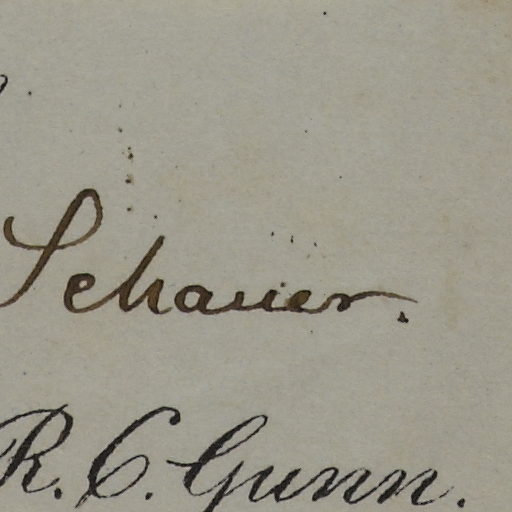 Schauer.
R. C. Gunn.